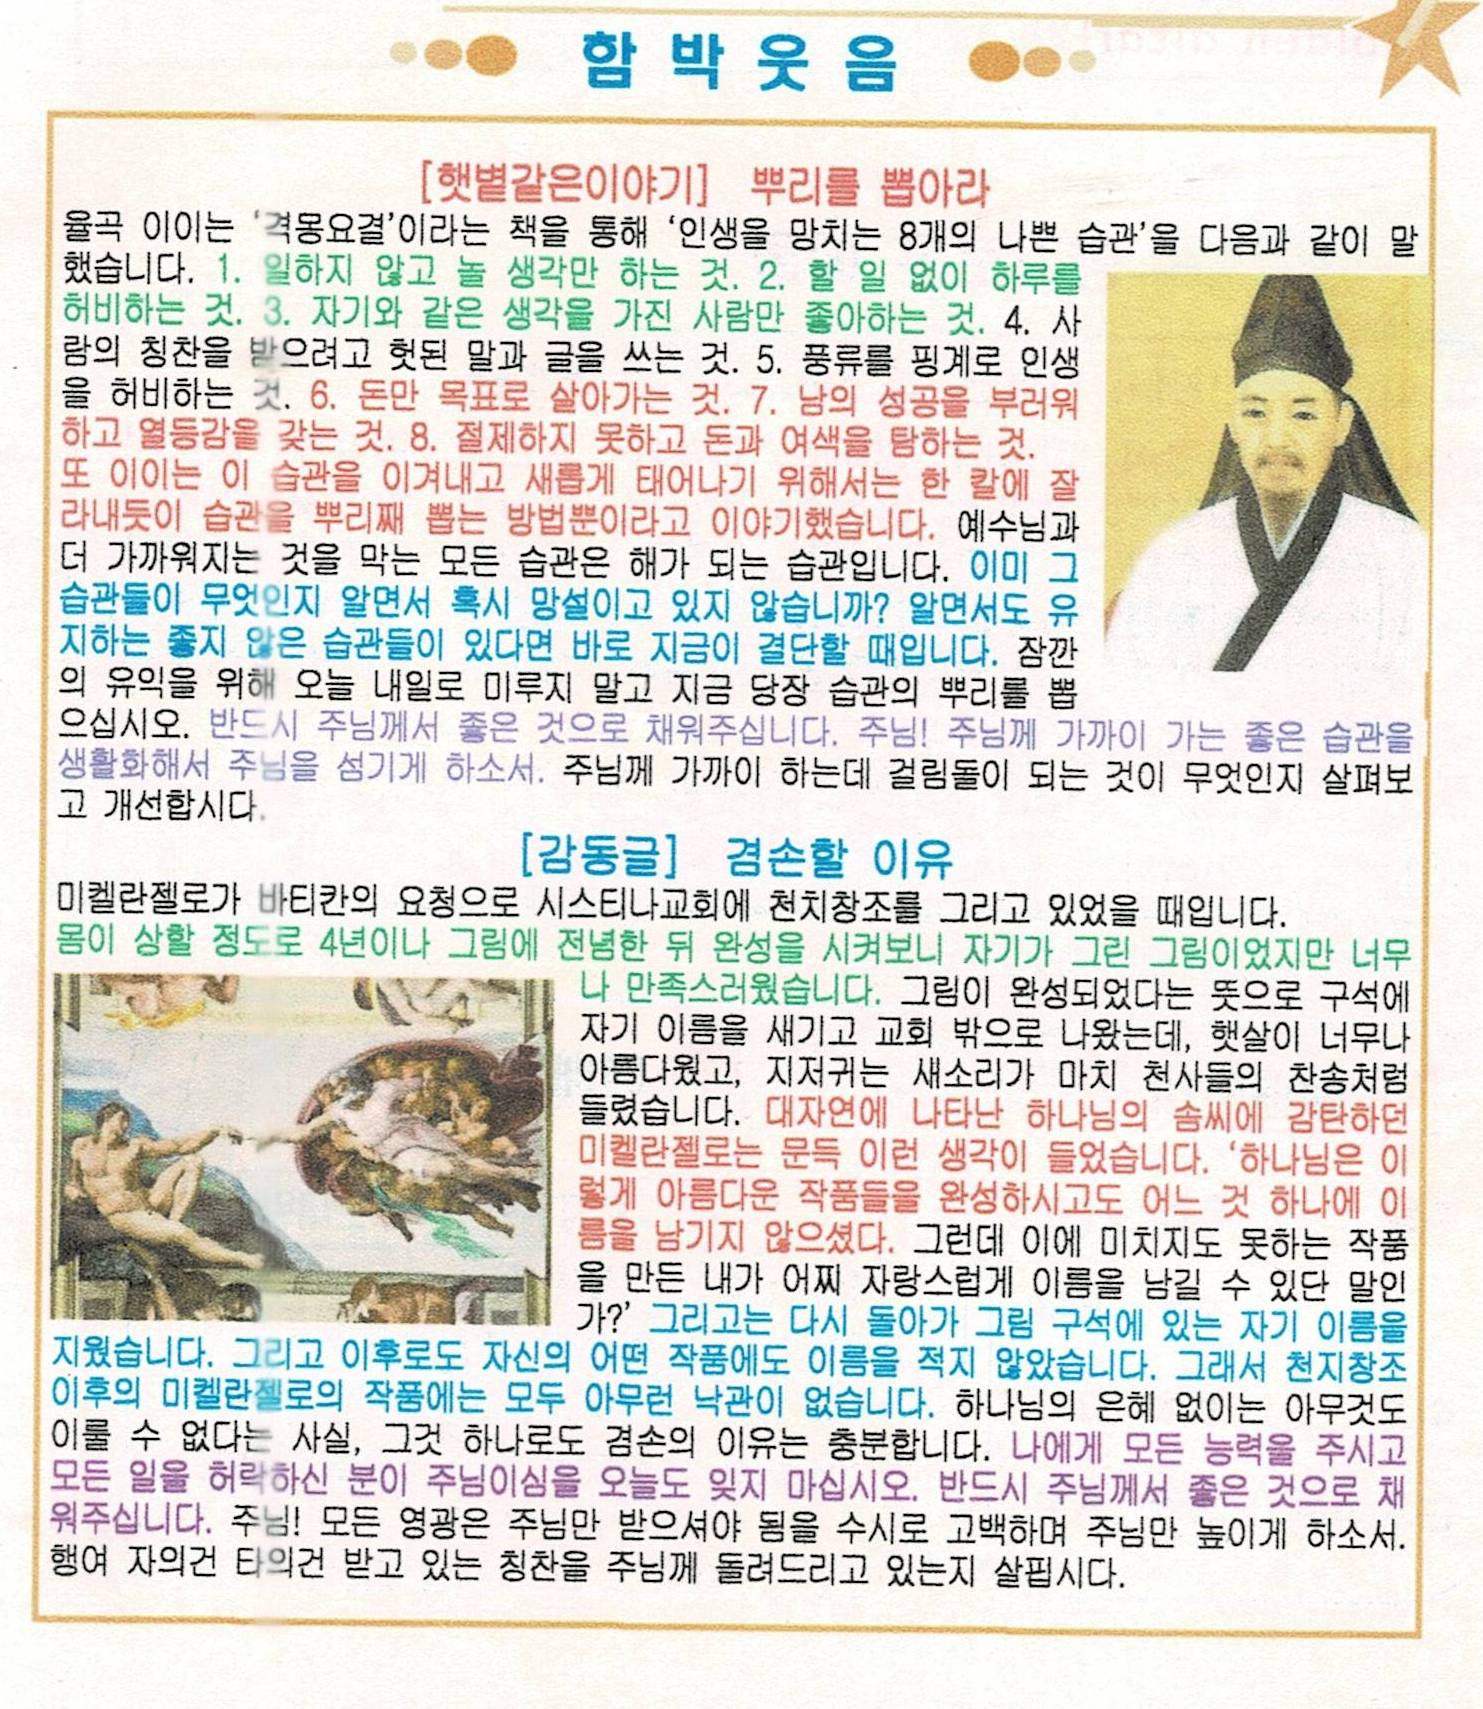 함박웃음
[햇볕같은이야기] 뿌리를 뽑아라
율곡 이이는 '격몽요결'이라는 책을 통해 '인생을 망치는 8개의 나쁜 습관'을 다음과 같이 말
했습니다. 1. 일하지 않고 놀 생각만 하는 것. 2. 할 일 없이 하루를
허비하는 것. 3. 자기와 같은 생각을 가진 사람만 좋아하는 것. 4. 사
람의 칭찬을 받으려고 헛된 말과 글을 쓰는 것. 5. 풍류를 핑계로 인생
을 허비하는 것. 6. 돈만 목표로 살아가는 것. 7. 남의 성공을 부러워
하고 열등감을 갖는 것. 8. 절제하지 못하고 돈과 여색을 탐하는 것.
또 이이는 이 습관을 이겨내고 새롭게 태어나기 위해서는 한 칼에 잘
라내듯이 습관을 뿌리째 뽑는 방법뿐이라고 이야기했습니다. 예수님과
더 가까워지는 것을 막는 모든 습관은 해가 되는 습관입니다. 이미 그
습관들이 무엇인지 알면서 혹시 망설이고 있지 않습니까? 알면서도 유
지하는 좋지 않은 습관들이 있다면 바로 지금이 결단할 때입니다. 잠깐
의 유익을 위해 오늘 내일로 미루지 말고 지금 당장 습관의 뿌리를 뽑
으십시오. 반드시 주님께서 좋은 것으로 채워주십니다. 주님! 주님께 가까이 가는 좋은 습관을
생활화해서 주님을 섬기게 하소서. 주님께 가까이 하는데 걸림돌이 되는 것이 무엇인지 살펴보
고 개선합시다.
[감동글] 겸손할 이유
미켈란젤로가 바티칸의 요청으로 시스티나교회에 천치창조를 그리고 있었을 때입니다.
몸이 상할 정도로 4년이나 그림에 전념한 뒤 완성을 시켜보니 자기가 그린 그림이었지만 너무
나 만족스러웠습니다. 그림이 완성되었다는 뜻으로 구석에
자기 이름을 새기고 교회 밖으로 나왔는데, 햇살이 너무나
아름다웠고, 지저귀는 새소리가 마치 천사들의 찬송처럼
들렸습니다. 대자연에 나타난 하나님의 솜씨에 감탄하던
미켈란젤로는 문득 이런 생각이 들었습니다. '하나님은 이
렇게 아름다운 작품들을 완성하시고도 어느 것 하나에 이
름을 남기지 않으셨다. 그런데 이에 미치지도 못하는 작품
을 만든 내가 어찌 자랑스럽게 이름을 남길 수 있단 말인
가?' 그리고는 다시 돌아가 그림 구석에 있는 자기 이름을
지웠습니다. 그리고 이후로도 자신의 어떤 작품에도 이름을 적지 않았습니다. 그래서 천지창조
이후의 미켈란젤로의 작품에는 모두 아무런 낙관이 없습니다. 하나님의 은혜 없이는 아무것도
이룰 수 없다는 사실, 그것 하나로도 겸손의 이유는 충분합니다. 나에게 모든 능력을 주시고
모든 일을 허락하신 분이 주님이심을 오늘도 잊지 마십시오. 반드시 주님께서 좋은 것으로 채
워주십니다. 주님! 모든 영광은 주님만 받으셔야 됨을 수시로 고백하며 주님만 높이게 하소서.
행여 자의건 타의건 받고 있는 칭찬을 주님께 돌려드리고 있는지 살핍시다.